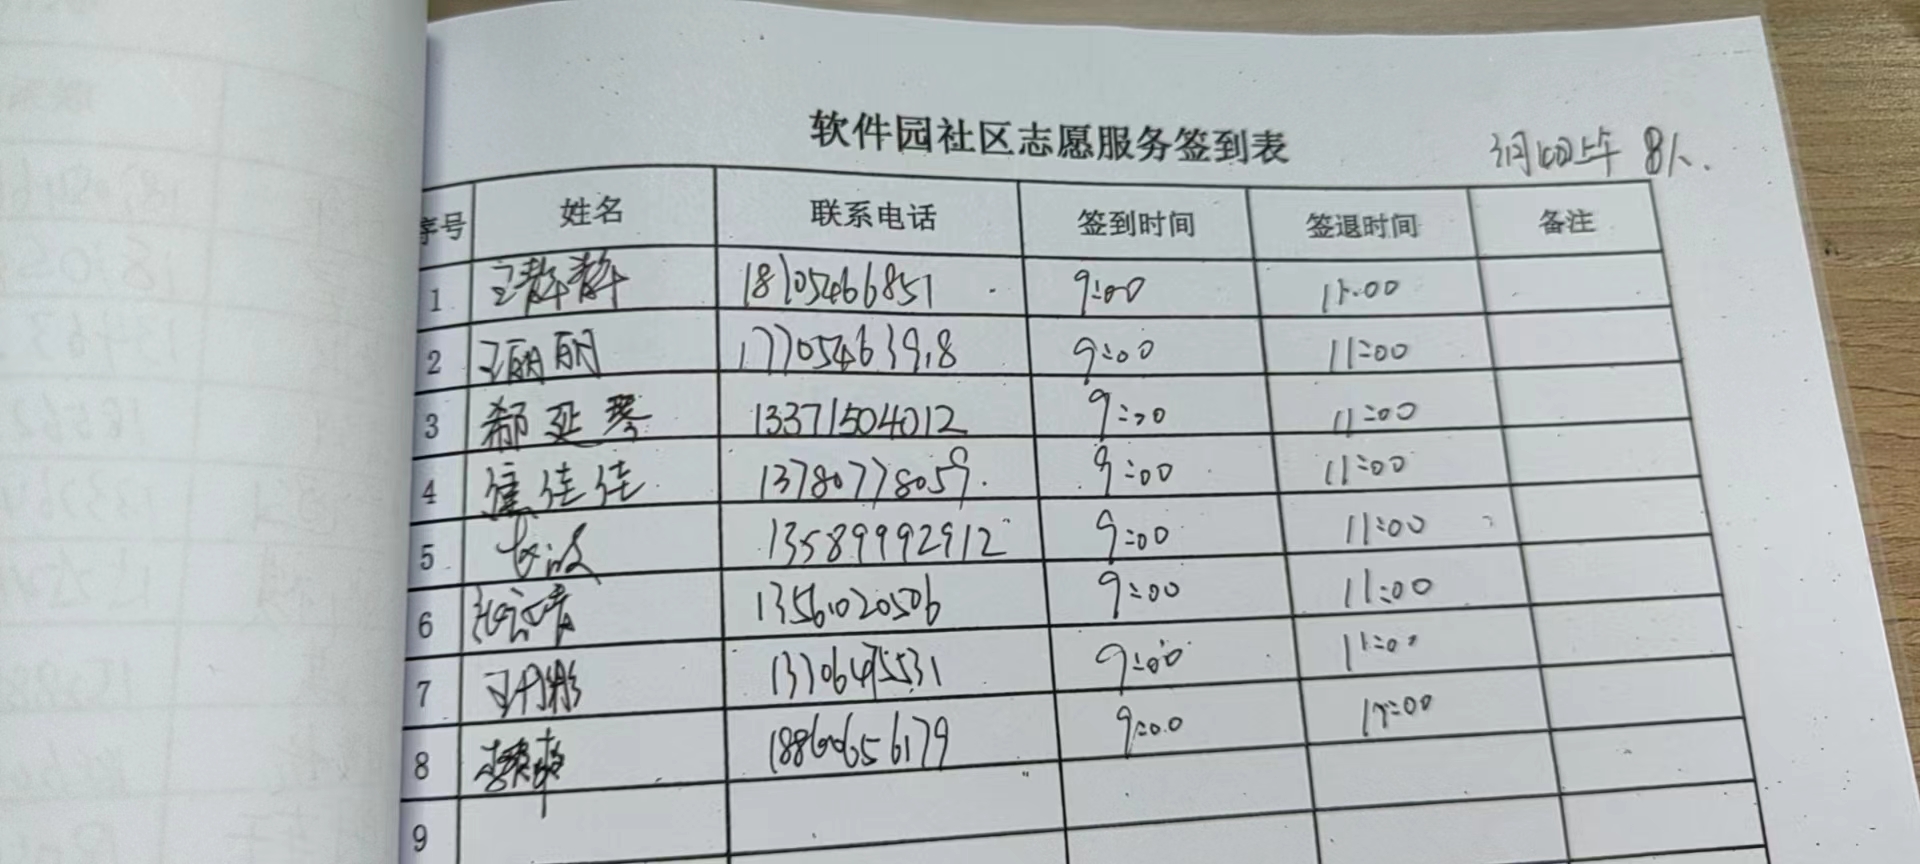 软件园社区志愿服务签到表
3月 上午 8人.
序号 姓名 联系电话 签到时间 签退时间 备注
1 王静静 18105466851 9:00 11:00
2 王丽丽 17705463918 9:00 11:00
3 郗延琴 13371504012 9:00 11:00
4 焦佳佳 13780778059 9:00 11:00
5 13589992912 9:00 11:00
6 13561020506 9:00 11:00
7 王丹彤 13706475531 9:00 11:00
8 18860656179 9:00 11:00
9